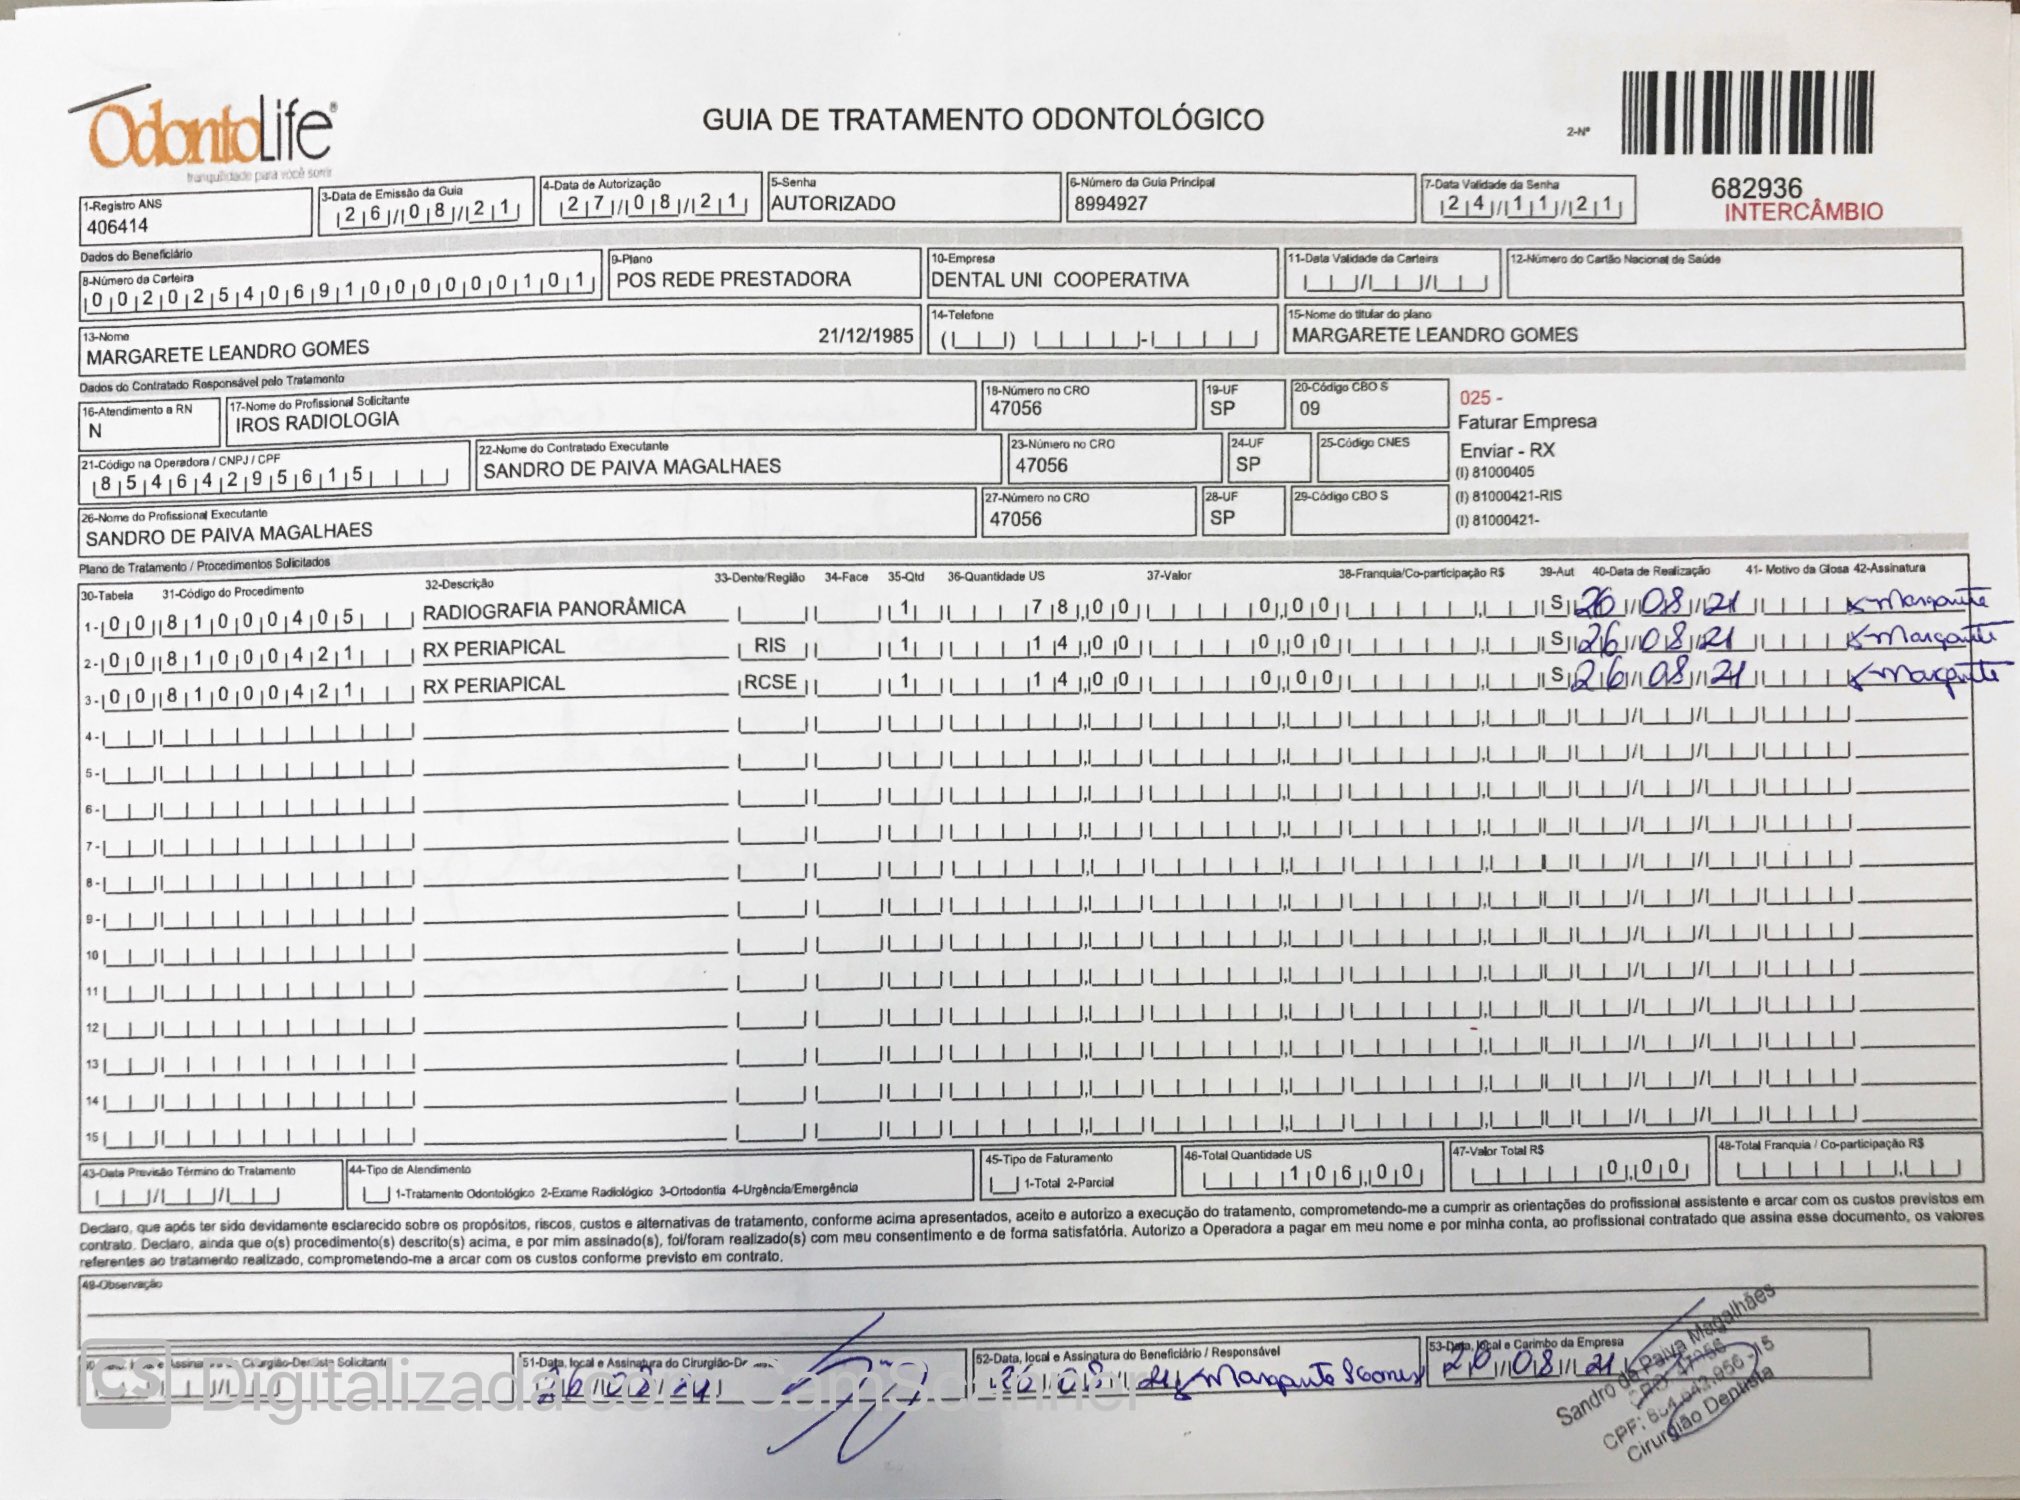 OdontoLife®
tranquilidade para você sorrir
GUIA DE TRATAMENTO ODONTOLÓGICO
2-Nº
682936
INTERCÂMBIO
1-Registro ANS
406414
3-Data de Emissão da Guia
26/08/21
4-Data de Autorização
27/08/21
5-Senha
AUTORIZADO
6-Número da Guia Principal
8994927
7-Data Validade da Senha
24/11/21
Dados do Beneficiário
8-Número da Carteira
00202540691000000101
9-Plano
POS REDE PRESTADORA
10-Empresa
DENTAL UNI COOPERATIVA
11-Data Validade da Carteira
12-Número do Cartão Nacional de Saúde
13-Nome
MARGARETE LEANDRO GOMES 21/12/1985
14-Telefone
15-Nome do titular do plano
MARGARETE LEANDRO GOMES
Dados do Contratado Responsável pelo Tratamento
16-Atendimento a RN
N
17-Nome do Profissional Solicitante
IROS RADIOLOGIA
18-Número no CRO
47056
19-UF
SP
20-Código CBO S
09
025 -
Faturar Empresa
Enviar - RX
(I) 81000405
(I) 81000421-RIS
(I) 81000421-
21-Código na Operadora / CNPJ / CPF
85464295615
22-Nome do Contratado Executante
SANDRO DE PAIVA MAGALHAES
23-Número no CRO
47056
24-UF
SP
25-Código CNES
26-Nome do Profissional Executante
SANDRO DE PAIVA MAGALHAES
27-Número no CRO
47056
28-UF
SP
29-Código CBO S
Plano de Tratamento / Procedimentos Solicitados
30-Tabela 31-Código do Procedimento 32-Descrição 33-Dente/Região 34-Face 35-Qtd 36-Quantidade US 37-Valor 38-Franquia/Co-participação R$ 39-Aut 40-Data de Realização 41- Motivo da Glosa 42-Assinatura
1- 00 81000405 RADIOGRAFIA PANORÂMICA 1 78,00 0,00 S 26/08/21 x Margarete
2- 00 81000421 RX PERIAPICAL RIS 1 14,00 0,00 S 26/08/21 x Margarete
3- 00 81000421 RX PERIAPICAL RCSE 1 14,00 0,00 S 26/08/21 x Margarete
4-
5-
6-
7-
8-
9-
10
11
12
13
14
15
43-Data Previsão Término do Tratamento
44-Tipo de Atendimento
1-Tratamento Odontológico 2-Exame Radiológico 3-Ortodontia 4-Urgência/Emergência
45-Tipo de Faturamento
1-Total 2-Parcial
46-Total Quantidade US
106,00
47-Valor Total R$
0,00
48-Total Franquia / Co-participação R$
Declaro, que após ter sido devidamente esclarecido sobre os propósitos, riscos, custos e alternativas de tratamento, conforme acima apresentados, aceito e autorizo a execução do tratamento, comprometendo-me a cumprir as orientações do profissional assistente e arcar com os custos previstos em
contrato. Declaro, ainda que o(s) procedimento(s) descrito(s) acima, e por mim assinado(s), foi/foram realizado(s) com meu consentimento e de forma satisfatória. Autorizo a Operadora a pagar em meu nome e por minha conta, ao profissional contratado que assina esse documento, os valores
referentes ao tratamento realizado, comprometendo-me a arcar com os custos conforme previsto em contrato.
49-Observação
Cirurgião-Dentista Solicitante
51-Data, local e Assinatura do Cirurgião-De
26/08/21
52-Data, local e Assinatura do Beneficiário / Responsável
26/08/21 x Margarete Gomes
53-Data, local e Carimbo da Empresa
26/08/21
Sandro de Paiva Magalhães
CRO: 47056
Cirurgião Dentista
CS Digitalizada com CamScanner